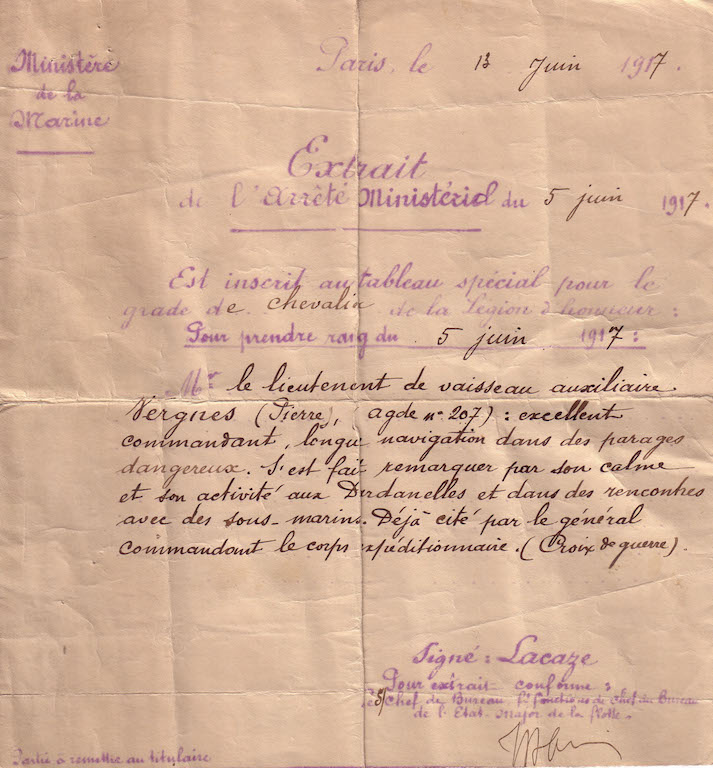 Ministère
de la
Marine
Paris, le 13 Juin 1917.
Extrait
de l'Arrêté Ministériel du 5 juin 1917.
Est inscrit au tableau spécial pour le
grade de chevalier de la Légion d'honneur :
Pour prendre rang du 5 juin 1917 :
Mr le lieutenent de vaisseau auxiliaire
Vergnes (Pierre, agde n° 207) : excellent
commandant, longue navigation dans des parages
dangereux. S'est fait remarquer par son calme
et son activité aux Dardanelles et dans des rencontres
avec des sous-marins. Déjà cité par le général
commandant le corps expéditionnaire. (Croix de guerre).
Signé : Lacaze
Pour extrait conforme :
Chef de Bureau, ft fonctions de chef du Bureau
de l'Etat-Major de la flotte.
Partie à remettre au titulaire